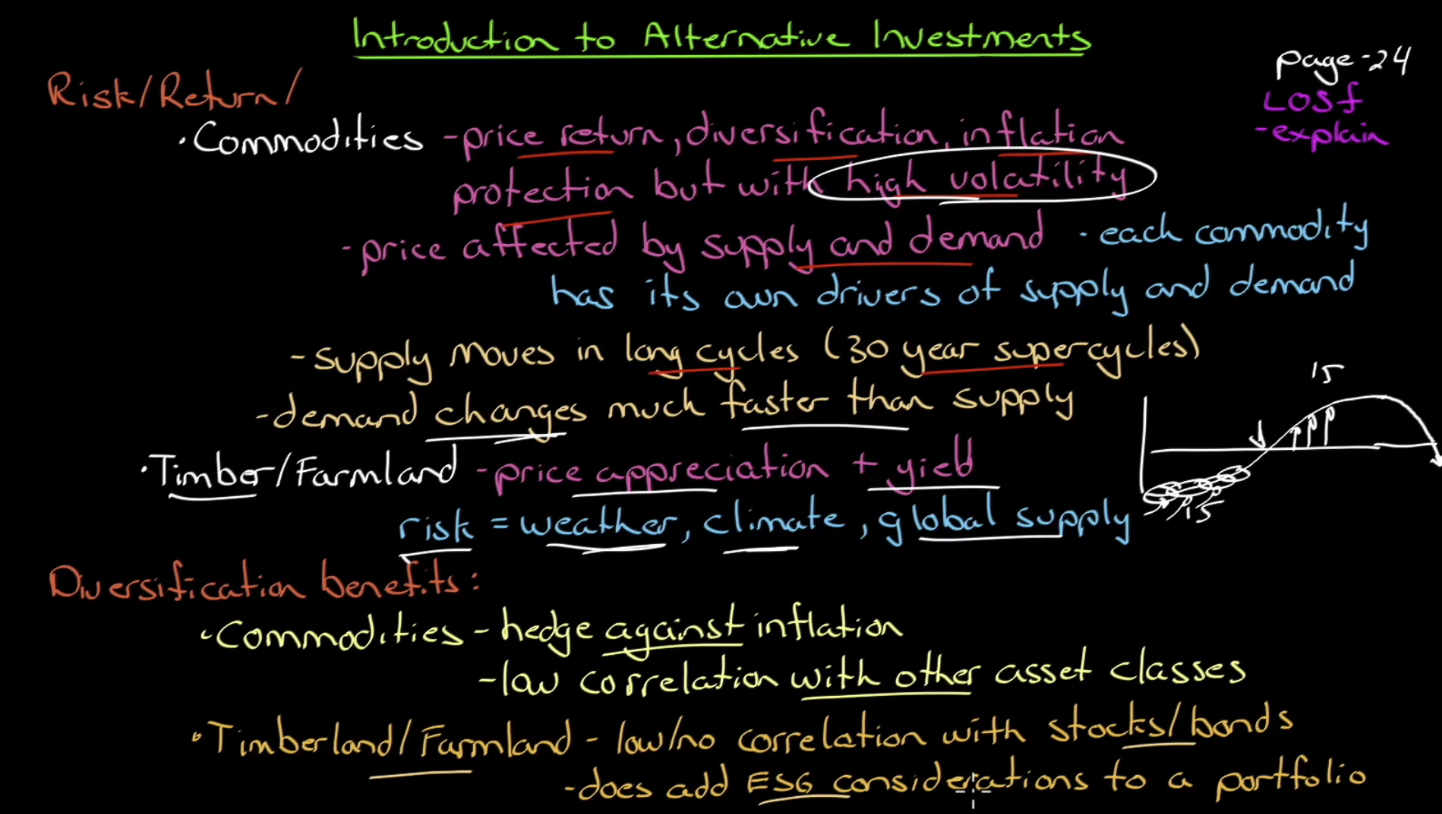 Introduction to Alternative Investments
page-24
Risk/Return/
LOSf
-explain
·Commodities -price return, diversification, inflation
protection but with high volatility
-price affected by supply and demand ·each commodity
has its own drivers of supply and demand
-supply moves in long cycles (30 year supercycles)
15
-demand changes much faster than supply
·Timber/Farmland -price appreciation + yield
15
risk = weather, climate, global supply
Diversification benefits:
·Commodities - hedge against inflation
-low correlation with other asset classes
·Timberland/Farmland - low/no correlation with stocks/bonds
-does add ESG considerations to a portfolio